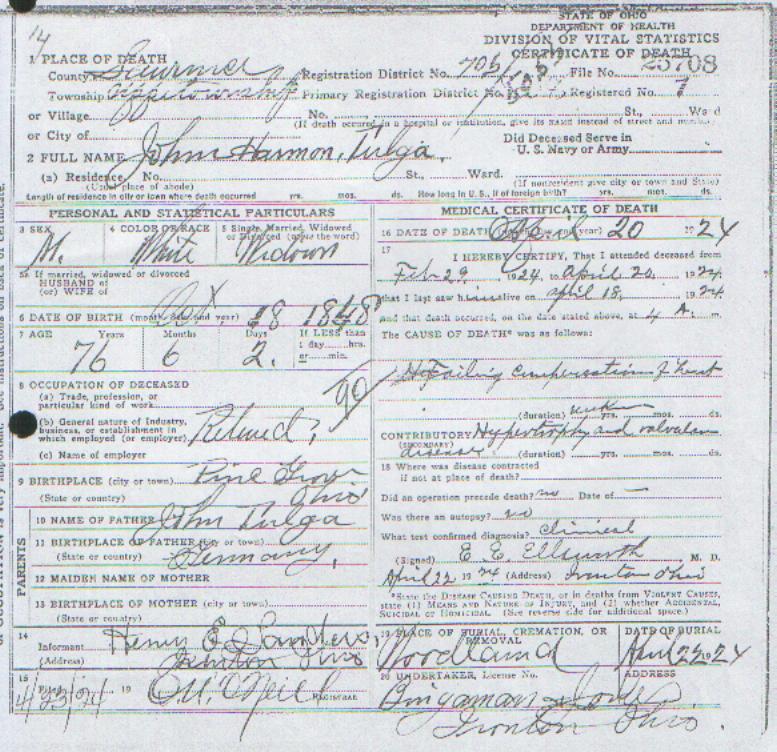 14
STATE OF OHIO
DEPARTMENT OF HEALTH
DIVISION OF VITAL STATISTICS
CERTIFICATE OF DEATH
1 PLACE OF DEATH
County Registration District No. 705 File No. 25708
Township Primary Registration District No. Registered No. 7
or Village No. St., Ward
(If death occurred in a hospital or institution, give its name instead of street and number.)
or City of
Did Deceased Serve in
U. S. Navy or Army
2 FULL NAME John Harmon Fulga
(a) Residence, No. St., Ward.
(Usual place of abode) (If nonresident give city or town and State)
Length of residence in city or town where death occurred yrs. mos. ds. How long in U. S., if of foreign birth? yrs. mos. ds.
PERSONAL AND STATISTICAL PARTICULARS
3 SEX 4 COLOR OR RACE 5 Single, Married, Widowed
or Divorced (write the word)
M. White Widown
5a If married, widowed or divorced
HUSBAND of
(or) WIFE of
6 DATE OF BIRTH (month, day, and year) Oct. 18 1848
7 AGE Years Months Days If LESS than
1 day hrs.
or min.
76 6 2.
8 OCCUPATION OF DECEASED
(a) Trade, profession, or
particular kind of work
90
(b) General nature of Industry,
business, or establishment in
which employed (or employer) Retired
(c) Name of employer
9 BIRTHPLACE (city or town) Pine Grove
(State or country) Ohio
PARENTS
10 NAME OF FATHER John Fulga
11 BIRTHPLACE OF FATHER (city or town)
(State or country) Germany,
12 MAIDEN NAME OF MOTHER
13 BIRTHPLACE OF MOTHER (city or town)
(State or country)
14
Informant Henry E
(Address) Ironton Ohio
15
Filed 4/23/24 19 O.U. O'Neill REGISTRAR
MEDICAL CERTIFICATE OF DEATH
16 DATE OF DEATH (month, day, and year) April 20 1924
17
I HEREBY CERTIFY, That I attended deceased from
Feb 29, 1924, to April 20, 1924
that I last saw h alive on April 18, 1924
and that death occurred, on the date stated above, at 4 A. m.
The CAUSE OF DEATH* was as follows:
Failing Compensation of heart
(duration) yrs. mos. ds.
CONTRIBUTORY Hypertrophy and valvular
(SECONDARY) disease (duration) yrs. mos. ds.
18 Where was disease contracted
if not at place of death?
Did an operation precede death? no Date of —
Was there an autopsy? no
What test confirmed diagnosis? Clinical
(Signed) E. E. Ellsworth M. D.
April 22 1924 (Address) Ironton Ohio
*State the DISEASE CAUSING DEATH, or in deaths from VIOLENT CAUSES,
state (1) MEANS AND NATURE OF INJURY, and (2) whether ACCIDENTAL,
SUICIDAL or HOMICIDAL. (See reverse side for additional space.)
19 PLACE OF BURIAL, CREMATION, OR
REMOVAL DATE OF BURIAL
Woodland April 22 1924
20 UNDERTAKER, License No. ADDRESS
Bingaman Jones
Ironton Ohio.